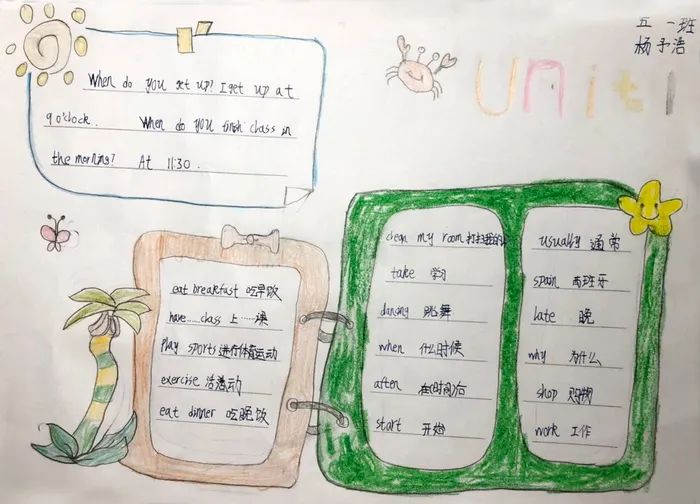 五 一班
杨予浩
Unit1
When do you get up? I get up at
9 o'clock. When do you finish class in
the morning? At 11:30.
eat breakfast 吃早饭
have……class 上……课
play sports 进行体育运动
exercise 活动
eat dinner 吃晚饭
clean my room 打扫我的
take 学习
dancing 跳舞
when 什么时候
after 在(时间)后
start 开始
usually 通常
spain 西班牙
late 晚
why 为什么
shop 购物
work 工作